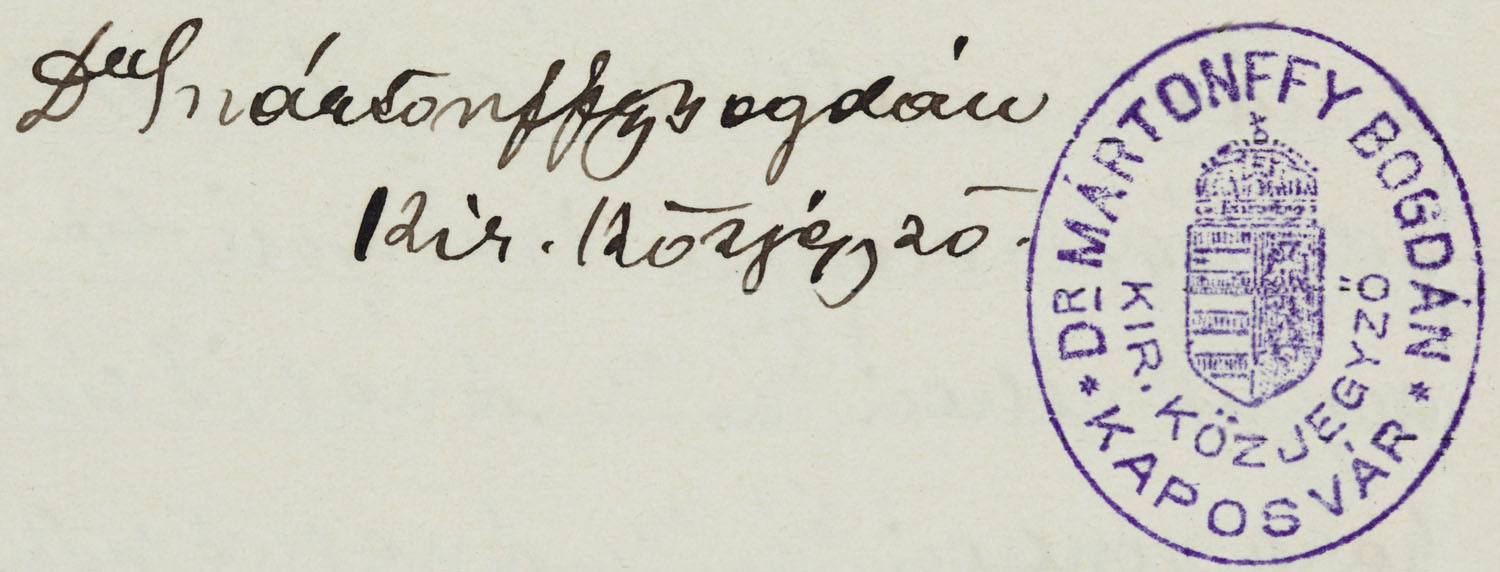 Dr Mártonffy Bogdán
Kir. Közjegyző.
DR MÁRTONFFY BOGDÁN
KIR. KÖZJEGYZŐ
* KAPOSVÁR *